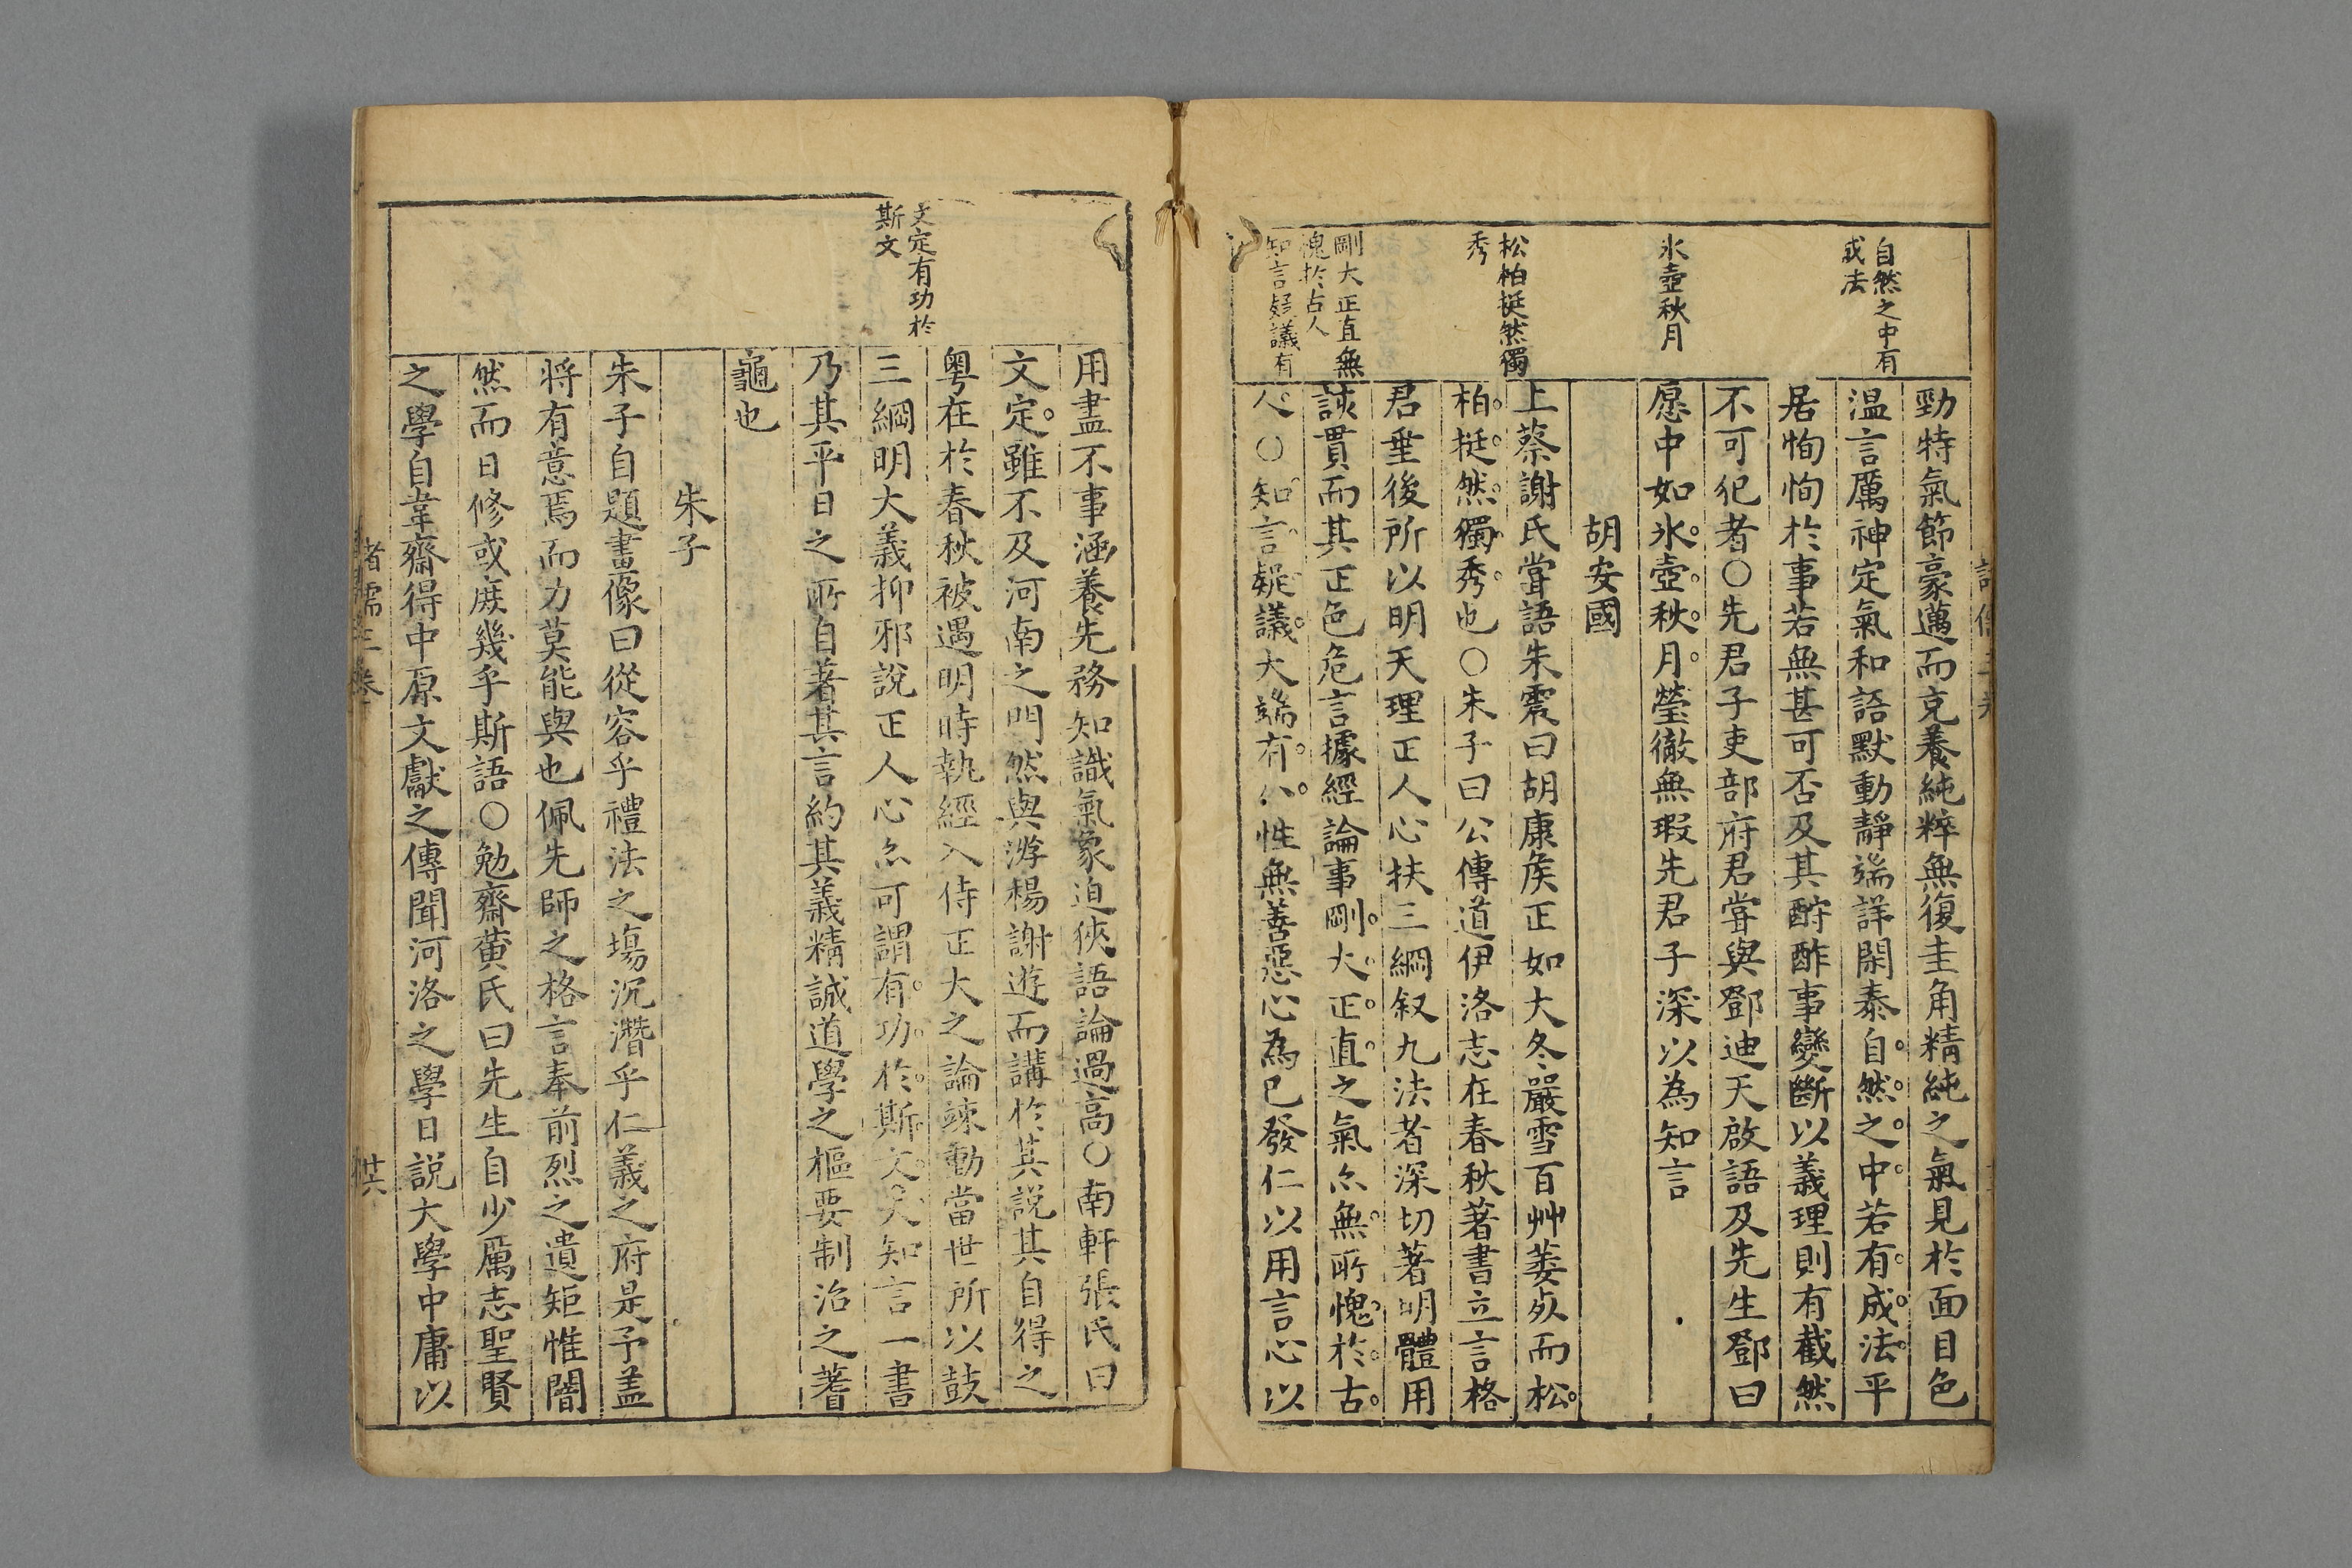 自然之中有
成法
氷壺秋月
松柏挺然獨
秀
剛大正直無
愧於古人
知言疑議有
勁特氣節豪邁而克養純粹無復圭角精純之氣見於面目色
温言厲神定氣和語默動靜端詳閑泰自然之中若有成法平
居恂恂於事若無甚可否及其酧酢事變斷以義理則有截然
不可犯者〇先君子吏部府君甞與鄧迪天啟語及先生鄧曰
愿中如氷壺秋月瑩徹無瑕先君子深以為知言
胡安國
上蔡謝氏甞語朱震曰胡康矦正如大冬嚴雪百艸萎死而松
柏挺然獨秀也〇朱子曰公傳道伊洛志在春秋著書立言格
君垂後所以明天理正人心扶三綱叙九法者深切著明體用
該貫而其正色危言據經論事剛大正直之氣亦無所愧於古
人〇知言疑議大端有八性無善惡心為已發仁以用言心以
文定有功於
斯文
用盡不事涵養先務知識氣象迫狹語論過高〇南軒張氏曰
文定雖不及河南之門然與游楊謝遊而講於其説其自得之
粤在於春秋被遇明時執經入侍正大之論竦動當世所以鼓
三綱明大義抑邪說正人心亦可謂有功於斯文矣知言一書
乃其平日之所自著其言約其義精誠道學之樞要制治之蓍
龜也
朱子
朱子自題畫像曰從容乎禮法之塲沉潛乎仁義之府是予盖
将有意焉而力莫能與也佩先師之格言奉前烈之遺矩惟闇
然而日修或庶幾乎斯語〇勉齋黄氏曰先生自少厲志聖賢
之學自韋齋得中原文獻之傳聞河洛之學日説大學中庸以
諸儒三卷
廿六